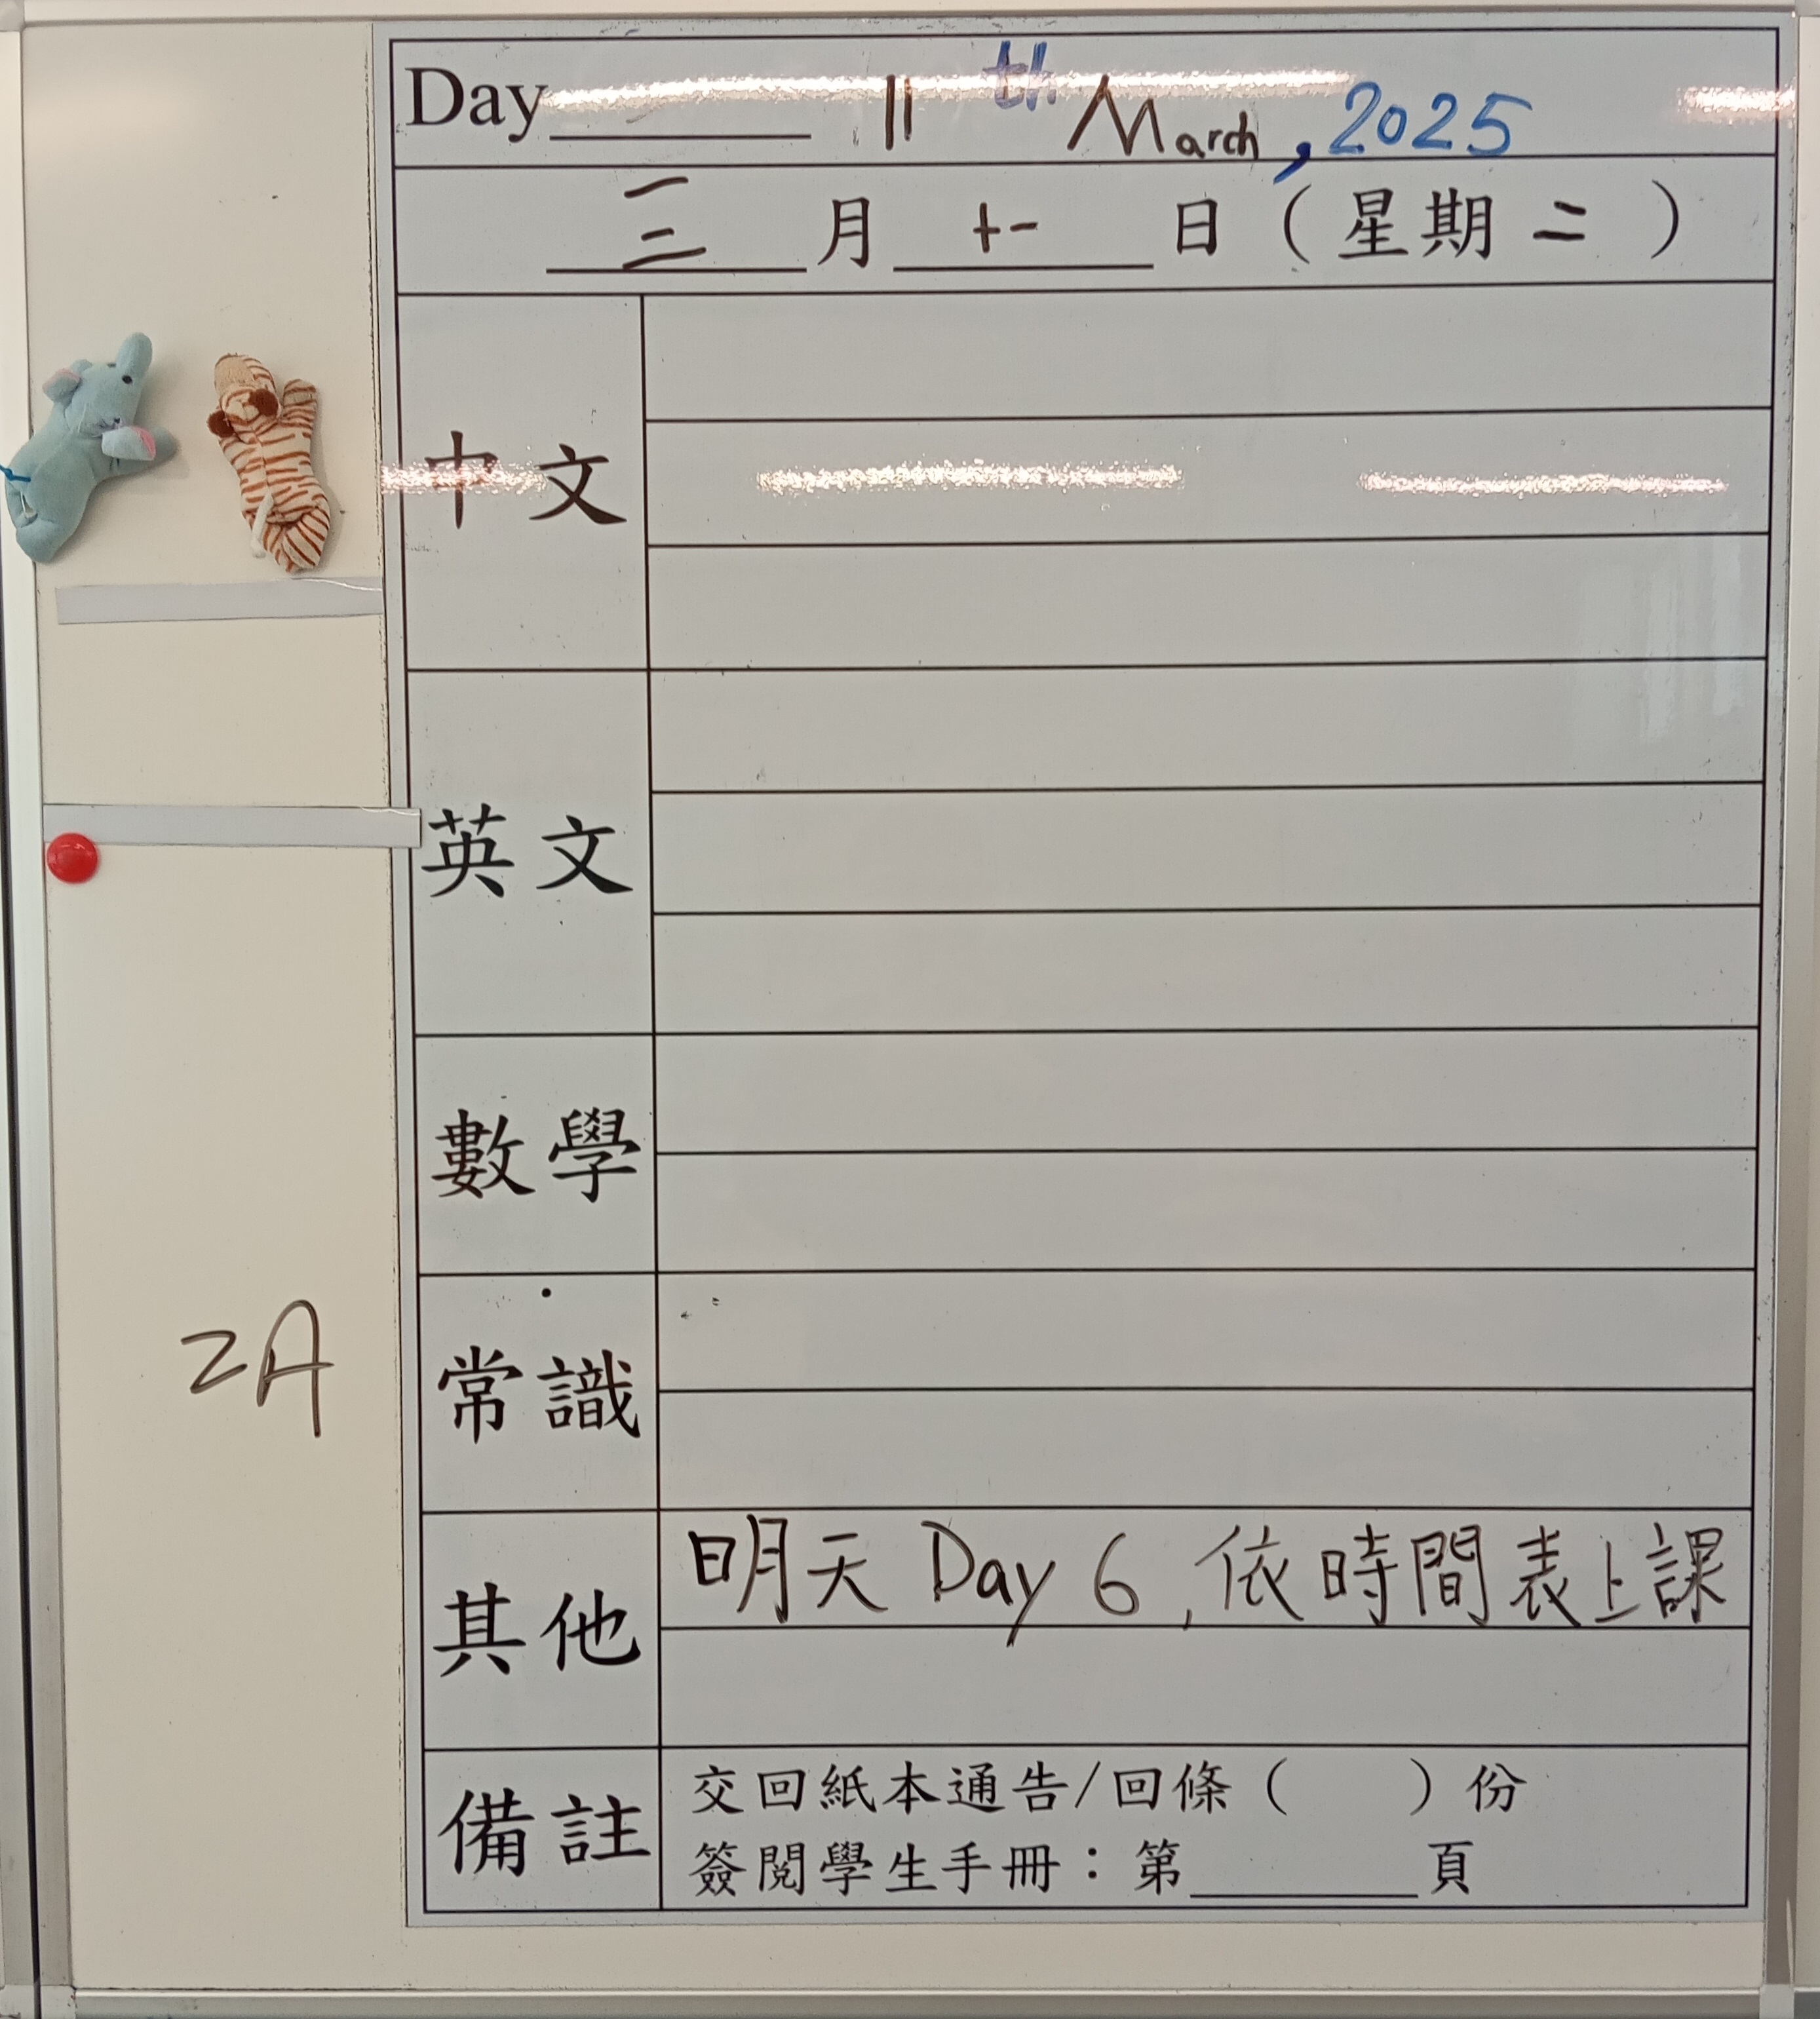 Day______ 11th March, 2025
三 月 十一 日（星期 二 ）
中文
英文
數學
2A
常識
其他
明天 Day 6, 依時間表上課
備註
交回紙本通告/回條（ ）份
簽閱學生手冊：第______頁